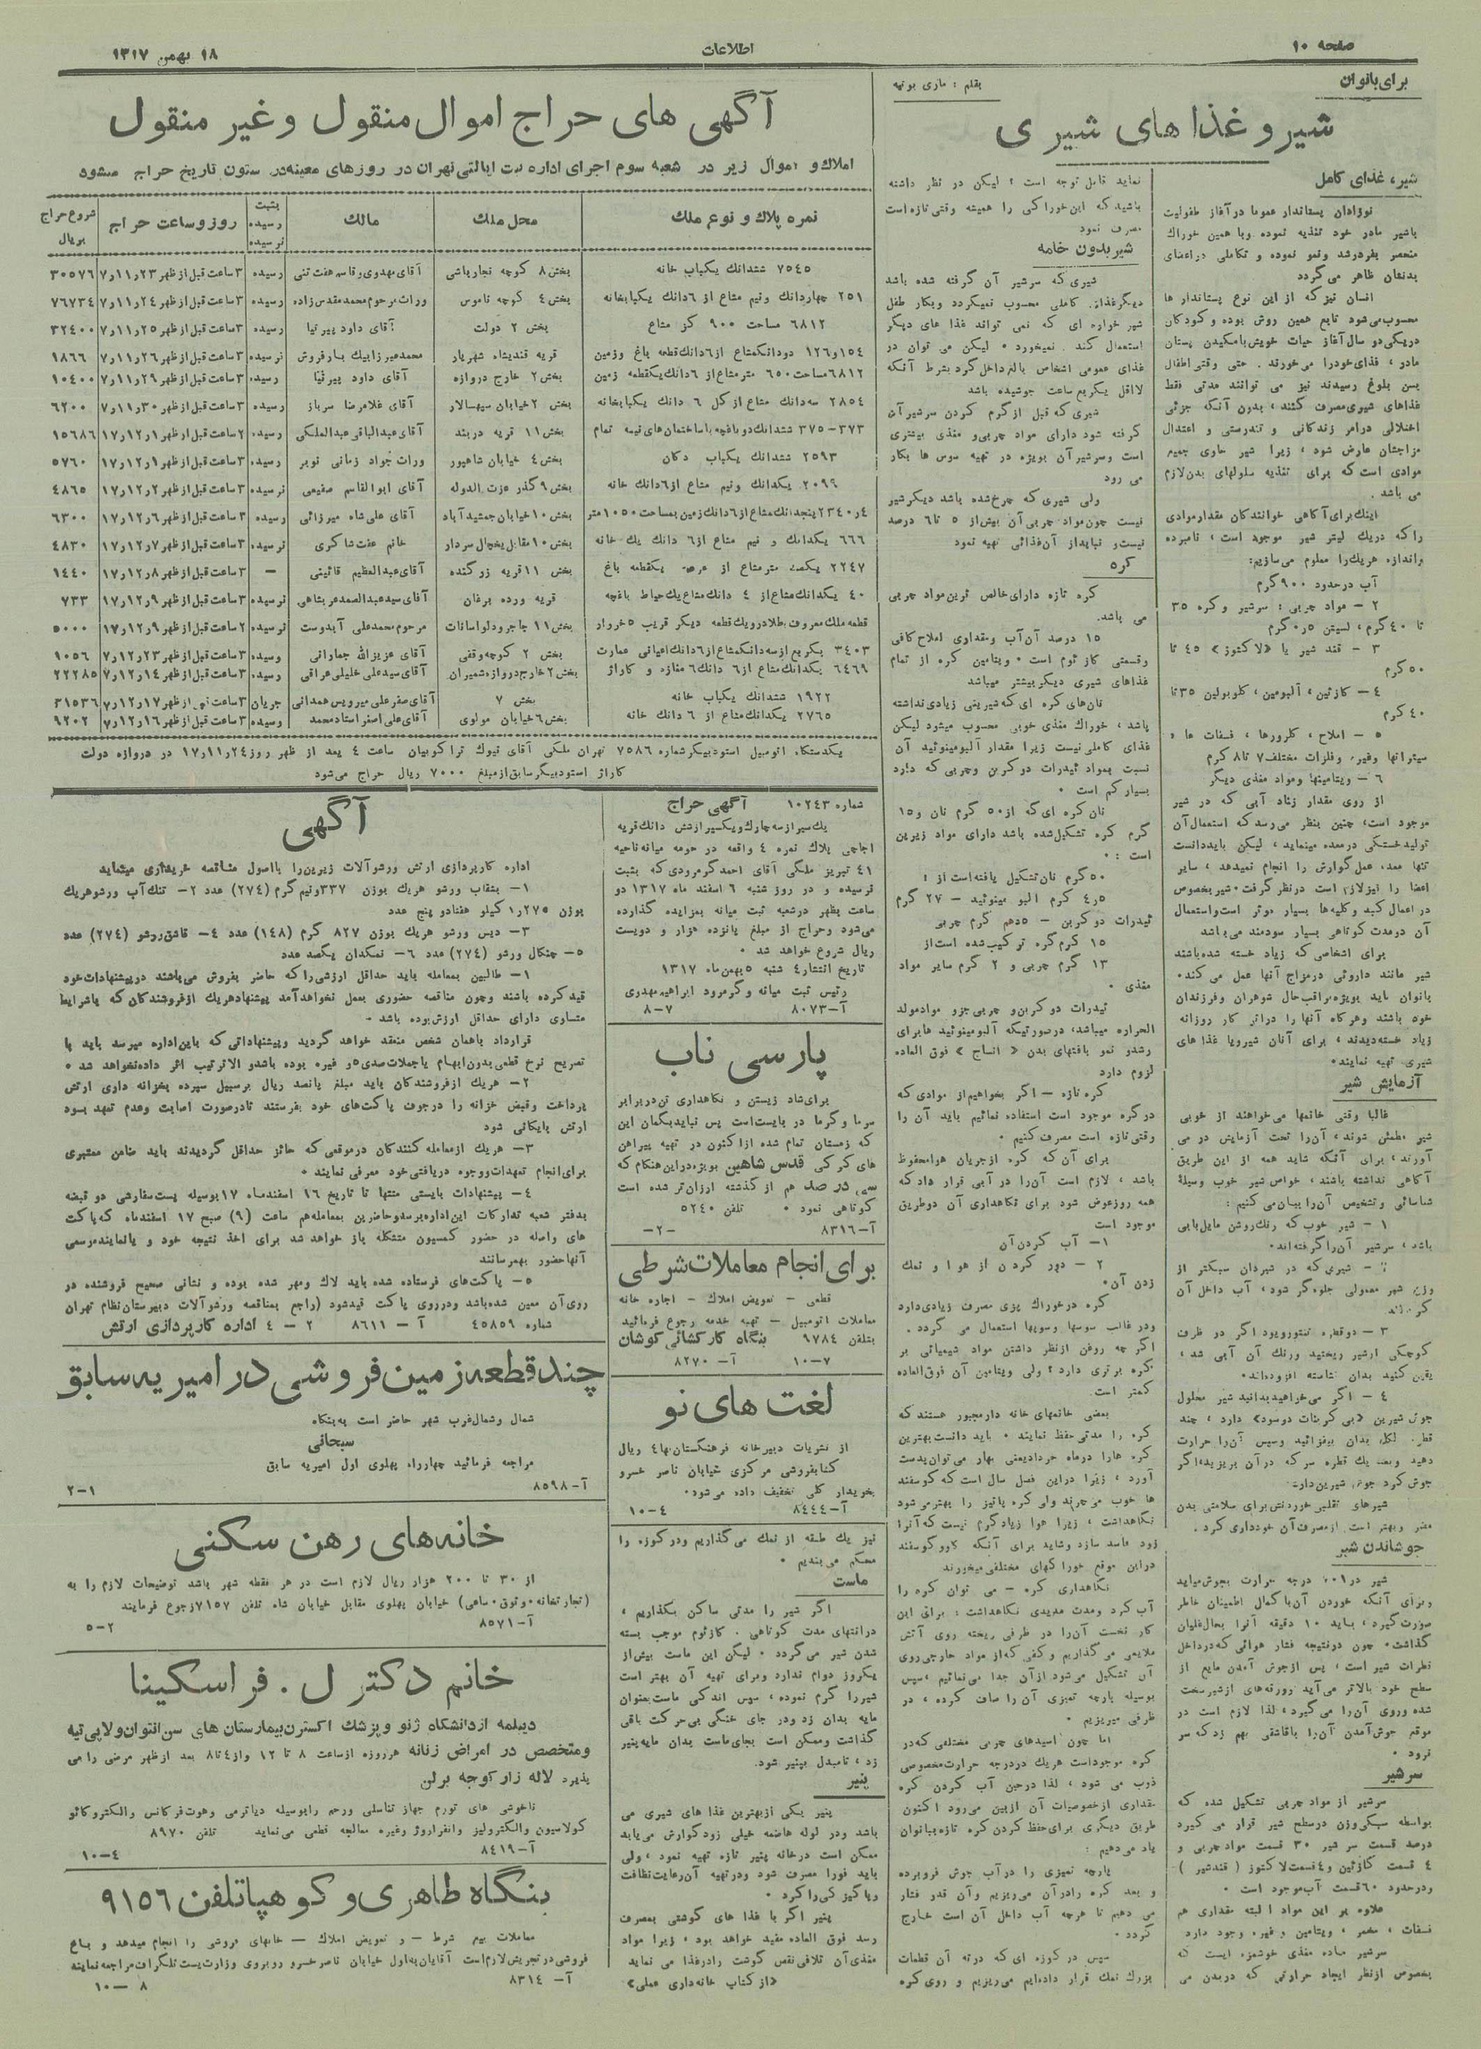 صفحه ۱۰
اطلاعات
۱۸ بهمن ۱۳۱۷
برای بانوان
بقلم : ماری بونیه
شیر و غذاهای شیری
شیر، غذای کامل
نوزادان پستاندار عموما در آغاز طفولیت
باشیر مادر خود تغذیه نموده وبا همین خوراك
منحصر بفرد رشد ونمو نموده و تکاملی در اعضای
بدنشان ظاهر می گردد
انسان نیز که از این نوع پستاندار ها
محسوب می شود تابع همین روش بوده و کودکان
در یکی دو سال آغاز حیات خویش بامکیدن پستان
مادر ، غذای خود را می خورند. حتی وقتی اطفال
بسن بلوغ رسیدند نیز می توانند مدتی فقط
غذاهای شیری مصرف کنند ، بدون آنکه جزئی
اختلالی در امر زندگانی و تندرستی و اعتدال
مزاجشان عارض شود ، زیرا شیر حاوی جمیع
موادی است که برای تغذیه سلولهای بدن لازم
می باشد .
اینك برای آگاهی خوانندگان مقدار موادی
را که در یك لیتر شیر موجود است ، نامبرده
واندازه هریك را معلوم می سازیم:
آب در حدود ۹۰۰ گرم
۲ – مواد چربی : سرشیر و کره ۳۵
تا ۴۰ گرم ، لسیتن ۰٫۵ گرم
۳ – قند شیر یا «لاکتوز» ۴۵ تا
۵۰ گرم
۴ – کازئین ، آلبومین ، کلوبولین ۳۵ تا
۴۰ گرم
۵ – املاح ، کلرورها ، فسفات ها ،
سیترانها وغیره وفلزات مختلف ۷ تا ۸ گرم
۶ – ویتامینها ومواد مغذی دیگر
از روی مقدار زیاد آبی که در شیر
موجود است، چنین بنظر می رسد که استعمال آن
تولید خستگی در معده مینماید ، لیکن باید دانست
تنها معده عمل گوارش را انجام نمیدهد ، سایر
اعضا را نیز لازم است در نظر گرفت ، شیر بخصوص
در اعمال کبد و کلیه ها بسیار موثر است واستعمال
آن در مدت کوتاهی بسیار سودمند می باشد
برای اشخاصی که زیاد خسته شده باشند
شیر مانند داروئی در مزاج آنها عمل می کند.
بانوان باید بویژه مراقب حال شوهران و فرزندان
خود باشند وهرگاه آنها را در اثر کار روزانه
زیاد خسته دیدند ، برای آنان شیر ویا غذاهای
شیری تهیه نمایند.
آزمایش شیر
غالبا وقتی خانمها می خواهند از خوبی
شیر مطمئن شوند ، آن را تحت آزمایش در می
آورند ، برای آنکه شاید همه از این طریق
آگاهی نداشته باشند ، خواص شیر خوب وسیلهٔ
شناسائی وتشخیص آن را بیان می کنیم :
۱ – شیر خوب که رنك روشن مایل بآبی
باشد ، سرشیر آن را گرفته اند.
۲ – شیری که در شیردان سبکتر از
وزن شیر معمولی جلوه گر شود ، آب داخل آن
کرده اند
۳ – دو قطره تنتورویود اگر در ظرف
کوچکی از شیر ریختید ورنك آن آبی شد ،
یقین کنید بدان نشاسته افزوده اند.
۴ – اگر می خواهید بدانید شیر محلول
جوش شیرین «بی کربنات دوسود» دارد ، چند
قطره الکل بدان بیفزائید وسپس آن را حرارت
دهید وبعد یك قطره سرکه در آن بریزید، اگر
جوش کرد جوش شیرین دارد.
شیرهای تقلبی خوردنش برای سلامتی بدن
مضر وبهتر است از مصرف آن خودداری کرد.
جوشاندن شیر
شیر در ۱۰۱ درجه حرارت بجوش میاید
وبرای آنکه خوردن آن با کمال اطمینان خاطر
صورت گیرد ، باید ۱۰ دقیقه آنرا بحال غلیان
گذاشت ، چون در نتیجه فشار هوائی که در داخل
قطرات شیر است ، پس از جوش آمدن مایع از
سطح خود بالاتر می آید و رقه های از شیر سخت
شده وروی آن را می گیرد ، لذا لازم است در
موقع جوش آمدن آن را باقاشقی بهم زد که سر
نرود .
سرشیر
سرشیر از مواد چربی تشکیل شده که
بواسطه سبکی وزن در سطح شیر قرار می گیرد
درصد قسمت سر شیر ۳۰ قسمت مواد چربی و
۴ قسمت کازئین و ۴ قسمت لاکتوز ( قند شیر )
ودر حدود ۶۰ قسمت آب موجود است .
علاوه بر این مواد البته مقداری هم
فسفات ، مخمر ، ویتامین و غیره وجود دارد
سرشیر ماده مغذی خوشمزه ایست که
بخصوص از نظر ایجاد حرارتی که در بدن می
نماید قابل توجه است ؛ لیکن در نظر داشته
باشید که این خوراکی را همیشه وقتی تازه است
مصرف نمود
شیر بدون خامه
شیری که سرشیر آن گرفته شده باشد
دیگر غذای کاملی محسوب نمیگردد وبکار طفل
شیر خواره ای که نمی تواند غذا های دیگر
استعمال کند نمیخورد . لیکن می توان در
غذای عمومی اشخاص بالغ داخل گردد بشرط آنکه
لااقل یکربع ساعت جوشیده باشد
شیری که قبل از گرم کردن سرشیر آن
گرفته شود دارای مواد چربی و مغذی بیشتری
است وسرشیر آن بویژه در تهیه سوس ها بکار
می رود
ولی شیری که چرخ شده باشد دیگر شیر
نیست چون مواد چربی آن بیش از ۵ تا ۶ درصد
نیست و نباید از آن غذائی تهیه نمود
کره
کره تازه دارای خالص ترین مواد چربی
می باشد.
۱۵ درصد آن آب ومقداری املاح کافی
وقسمتی کازئوم است . ویتامین کره از تمام
غذاهای شیری دیگر بیشتر میباشد
نان های کره ای که شیرینی زیادی نداشته
باشد ، خوراك مغذی خوبی محسوب میشود لیکن
غذای کاملی نیست زیرا مقدار آلبومینوئید آن
نسبت بمواد ئیدرات دوکربن وچربی که دارد
بسیار کم است .
نان کره ای که از ۵۰ گرم نان و ۱۵
گرم کره تشکیل شده باشد دارای مواد زیرین
است : .
۵۰ گرم نان تشکیل یافته است از :
۴٫۵ گرم البو مینوئید – ۲۷ گرم
ئیدرات دوکربن – ۵ دهم گرم چربی
۱۵ گرم کره ترکیب شده است از
۱۳ گرم چربی و ۲ گرم سایر مواد
مغذی .
ئیدرات دوکربن و چربی جزو مواد مولد
الحراره میباشد، در صورتیکه آلبومینوئید ها برای
رشد و نمو بافتهای بدن « انساج » فوق العاده
لزوم دارد
کره تازه – اگر بخواهیم از موادی که
در کره موجود است استفاده نمائیم باید آن را
وقتی تازه است مصرف کنیم .
برای آن که کره از جریان هوا محفوظ
باشد ، لازم است آن را در آبی قرار داد که
همه روز عوض شود برای نگاهداری آن دو طریق
موجود است
۱ – آب کردن آن
۲ – دور کردن از هوا و نمك
زدن آن.
کره در خوراك پزی مصرف زیادی دارد
ودر غالب سوسها وسوپها استعمال می گردد .
اگر چه روغن از نظر داشتن مواد شیمیائی بر
کره برتری دارد ؛ ولی ویتامین آن فوق العاده
کمتر است.
بعضی خانمهای خانه دار مجبور هستند که
کره را مدتی حفظ نمایند . باید دانست بهترین
کره ها را در ماه خرداد یعنی بهار می توان بدست
آورد ، زیرا در این فصل سال است که گوسفند
ها خوب می چرند ولی کره پائیز را بهتر می شود
نگاهداشت ، زیرا هوا زیاد گرم نیست که آنرا
زود فاسد سازد وشاید برای آنکه گاو و گوسفند
در این موقع خوراکهای مختلفی میخورند
نگاهداری کره – می توان کره را
آب کرد ومدت مدیدی نگاهداشت : برای این
کار نخست آن را در ظرفی ریخته روی آتش
ملایمی می گذاریم و کفی که از مواد خارجی روی
آن تشکیل می شود از آن جدا می نمائیم ، سپس
بوسیله پارچه تمیزی آن را صاف کرده ، در
ظرفی میریزیم .
اما چون اسیدهای چربی مختلفی که در
کره موجود است هریك در درجه حرارت مخصوصی
ذوب می شود ، لذا در حین آب کردن کره
مقداری از خصوصیات آن از بین می رود اکنون
طریق دیگری برای حفظ کردن کره تازه ببانوان
یاد می دهیم :
پارچه تمیزی را در آب جوش فرو برده
و بعد کره را در آن می ریزیم و آن قدر فشار
می دهیم تا هرچه آب داخل آن است خارج
گردد .
سپس در کوزه ای که در ته آن قطعات
بزرك نمك قرار داده ایم می ریزیم و روی کره
نیز یك طبقه از نمك می گذاریم ودر کوزه را
محکم می بندیم .
ماست
اگر شیر را مدتی ساکن بگذاریم ،
در انتهای مدت کوتاهی . کازئوم موجب بسته
شدن شیر می گردد . لیکن این ماست بیش از
یکروز دوام ندارد وبرای تهیه آن بهتر است
شیر را گرم نموده ، سپس اندکی ماست بعنوان
مایه بدان زد ودر جای خنکی بی حرکت باقی
گذاشت وممکن است بجای ماست بدان مایه پنیر
زد ، تا مبدل بپنیر شود.
پنیر
پنیر یکی از بهترین غذا های شیری می
باشد ودر لوله هاضمه خیلی زود گوارش می یابد
ممکن است در خانه پنیر تازه تهیه نمود ، ولی
باید فورا مصرف شود ودر تهیه آن رعایت نظافت
وپاکیزگی را کرد .
پنیر اگر با غذا های گوشتی بمصرف
رسد فوق العاده مفید خواهد بود ، زیرا مواد
مغذی آن تلافی نقص گوشت را در غذا می نماید
«از کتاب خانه داری عملی»
آگهی های حراج اموال منقول و غیر منقول
املاك و اموال زیر در شعبه سوم اجرای اداره ثبت ایالتی تهران در روزهای معینه در ستون تاریخ حراج میشود
نمره پلاك و نوع ملك | محل ملك | مالك | بثبت رسیده نرسیده | روز و ساعت حراج | شروع حراج بریال
۷۵۴۵ ششدانك یکباب خانه | بخش ۸ کوچه نجارباشی | آقای مهدوی و قاسم هفت تنی | رسیده | ۳ ساعت قبل از ظهر ۲۳ر۱۱ر۱۷ | ۳۰۵۷۶
۲۵۱ چهاردانك ونیم مشاع از ۶ دانك یکبابخانه | بخش ۴ کوچه ناموس | وراث مرحوم محمد مقدس زاده | رسیده | ۳ ساعت قبل از ظهر ۲۴ر۱۱ر۱۷ | ۷۶۷۳۴
۶۸۱۲ مساحت ۹۰۰ گز مشاع | بخش ۲ دولت | آقای داود پیرنیا | رسیده | ۳ ساعت قبل از ظهر ۲۵ر۱۱ر۱۷ | ۳۲۴۰۰
۱۵۴و۱۲۶ دو دانك مشاع از ۶ دانك قطعه باغ وزمین | قریه قندیشاه شهریار | محمد میرزا بیك بارفروش | نرسیده | ۳ ساعت قبل از ظهر ۲۶ر۱۱ر۱۷ | ۱۸۶۶
۶۸۱۲ مساحت ۶۵۰ متر مشاع از ۶ دانك یکقطعه زمین | بخش ۲ خارج دروازه | آقای داود پیرنیا | رسیده | ۳ ساعت قبل از ظهر ۲۹ر۱۱ر۱۷ | ۱۰۴۰۰
۲۸۵۴ سه دانك مشاع از کل ۶ دانك یکبابخانه | بخش ۲ خیابان سپهسالار | آقای غلامرضا سرباز | رسیده | ۳ ساعت قبل از ظهر ۳۰ر۱۱ر۱۷ | ۶۲۰۰
۳۷۳–۳۷۵ ششدانك دو باغچه باساختمان های نیمه تمام | بخش ۱۱ قریه دربند | آقای عبدالباقی عبدالملکی | رسیده | ۲ ساعت قبل از ظهر ۱ر۱۲ر۱۷ | ۱۵۶۸۶
۲۵۹۳ ششدانك یکباب دکان | بخش ۴ خیابان شاهپور | وراث جواد زمانی نوبر | رسیده | ۳ ساعت قبل از ظهر ۱ر۱۲ر۱۷ | ۵۷۶۰
۲۰۹۹ یکدانك ونیم مشاع از ۶ دانك خانه | بخش ۹ گذر عزت الدوله | آقای ابوالقاسم صفیعی | نرسیده | ۳ ساعت قبل از ظهر ۲ر۱۲ر۱۷ | ۴۸۶۵
۴ر۲۳۴۰ پنجدانك مشاع از ۶ دانك زمین بمساحت ۱۰۵۰ متر | بخش ۱۰ خیابان جمشید آباد | آقای علی شاه میرزائی | رسیده | ۳ ساعت قبل از ظهر ۶ر۱۲ر۱۷ | ۶۳۰۰
۶۶۶ یکدانك و نیم مشاع از ۶ دانك یك خانه | بخش ۱۰ مقابل یخچال سردار | خانم عفت شاکری | نرسیده | ۳ ساعت قبل از ظهر ۷ر۱۲ر۱۷ | ۴۸۳۰
۲۲۴۷ یکصد متر مشاع از عرصه یکقطعه باغ | بخش ۱۱ قریه زرگنده | آقای عبدالعظیم قائینی | – | ۳ ساعت قبل از ظهر ۸ر۱۲ر۱۷ | ۱۴۴۰
۴۰ یکدانك مشاع از ۴ دانك مشاع یك حیاط باغچه | قریه ورده برغان | آقای سید عبدالصمد عربشاهی | نرسیده | ۳ ساعت قبل از ظهر ۹ر۱۲ر۱۷ | ۷۳۳
قطعه ملك معروف بطلا در و یك قطعه دیگر قریب ۵ خروار | بخش ۱۱ جاجرود لواسانات | مرحوم محمد علی آبدوست | نرسیده | ۲ ساعت قبل از ظهر ۹ر۱۲ر۱۷ | ۵۰۰۰
۳۴۰۳ یکربع از سه دانك مشاع از ۶ دانك اعیانی عمارت | بخش ۲ کوچه وقفی | آقای عزیزالله جمارانی | رسیده | ۳ ساعت قبل از ظهر ۲۳ر۱۲ر۱۷ | ۹۰۵۶
۶۴۶۹ یکدانك مشاع از ۶ دانك ۶ مغازه و گاراژ | بخش ۲ خارج دروازه شمیران | آقای سید علی خلیلی عراقی | رسیده | ۳ ساعت قبل از ظهر ۱۴ر۱۲ر۱۷ | ۲۲۲۸۵
۱۹۲۲ ششدانك یکباب خانه | بخش ۷ | آقای صفر علی میرویس همدانی | جریان | ۳ ساعت قبل از ظهر ۱۷ر۱۲ر۱۷ | ۳۱۵۳۶
۲۷۶۵ یکدانك مشاع از ۶ دانك خانه | بخش ۶ خیابان مولوی | آقای علی اصغر استاد محمد | رسیده | ۳ ساعت قبل از ظهر ۱۶ر۱۲ر۱۷ | ۹۲۰۲
یکدستگاه اتومبیل استودبیکر شماره ۷۵۸۶ تهران ملکی آقای نیوك تراکوبیان ساعت ۴ بعد از ظهر روز ۲۴ر۱۱ر۱۷ در دروازه دولت
گاراژ استودبیگر سابق از مبلغ ۷۰۰۰ ریال حراج می شود
شماره ۱۰۲۴۳ آگهی حراج
یك سیر از سه چارك و یکسیر از شش دانك قریه
اجاجی پلاك نمره ۴ واقعه در حومه میانه ناحیه
۴۱ تبریز ملکی آقای احمد گرمرودی که بثبت
نرسیده و در روز شنبه ۶ اسفند ماه ۱۳۱۷ دو
ساعت بظهر در شعبه ثبت میانه بمزایده گذارده
می شود وحراج از مبلغ پانزده هزار و دویست
ریال شروع خواهد شد .
تاریخ انتشار ۴ شنبه ۵ بهمن ماه ۱۳۱۷
رئیس ثبت میانه و گرمرود ابراهیم مهدری
آ–۸۰۷۳ ۷–۸
پارسی ناب
برای شاد زیستن و نگاهداری تن در برابر
سرما و گرما در بایست است پس نباید بگمان این
که زمستان تمام شده از اکنون در تهیه پیراهن
های کرکی قدس شاهین بویژه در این هنگام که
سی در صد هم از گذشته ارزان تر شده است
کوتاهی نمود . تلفن ۵۲۴۰
آ–۸۳۱۶ –۲–
برای انجام معاملات شرطی
قطعی – تعویض املاك – اجاره خانه
معاملات اتومبیل – تهیه خدمه رجوع فرمائید
بتلفن ۹۷۸۴ بنگاه کارگشائی کوشان
۷–۱۰ آ–۸۲۷۰
لغت های نو
از نشریات دبیرخانه فرهنگستان بها ۴ ریال
کتابفروشی مرکزی خیابان ناصر خسرو
بخریدار کلی تخفیف داده می شود.
آ–۸۴۴۴ ۴–۱۰
آگهی
اداره کارپردازی ارتش ورشو آلات زیرین را باصول مناقصه خریداری مینماید
۱– بشقاب ورشو هریك بوزن ۳۳۷ ونیم گرم (۲۷۴) عدد ۲– تنك آب ورشو هریك
بوزن ۲۷۵ر۱ کیلو هفتاد و پنج عدد
۳– دیس ورشو هریك بوزن ۸۲۷ گرم (۱۴۸) عدد ۴– قاشق ورشو (۲۷۴) عدد
۵– چنگال ورشو (۲۷۴) عدد ۶– نمکدان یکصد عدد
۱– طالبین بمعامله باید حداقل ارزشی را که حاضر بفروش می باشند در پیشنهادات خود
قید کرده باشند وچون مناقصه حضوری بعمل نخواهد آمد پیشنهاد هریك از فروشندگان که با شرایط
متساوی دارای حداقل ارزش بوده باشد .
قرارداد باهمان شخص منعقد خواهد گردید وپیشنهاداتی که باین اداره میرسد باید با
تصریح نرخ قطعی بدون ابهام یا جملات صدی ۵ و غیره بوده باشد و الا ترتیب اثر داده نخواهد شد .
۲– هریك از فروشندگان باید مبلغ پانصد ریال برسبیل سپرده بخزانه داری ارتش
پرداخت وقبض خزانه را در جوف پاکت های خود بفرستند تا در صورت اصابت وعدم تعهد بسود
ارتش بایگانی شود
۳– هریك از معامله کنندگان در موقعی که حائز حداقل گردیدند باید ضامن معتبری
برای انجام تعهدات ووجوه دریافتی خود معرفی نمایند .
۴– پیشنهادات بایستی منتها تا تاریخ ۱۶ اسفند ماه ۱۷ بوسیله پست سفارشی دو قبضه
بدفتر شعبه تدارکات این اداره برسد و حاضرین بمعامله هم ساعت (۹) صبح ۱۷ اسفند ماه که پاکت
های واصله در حضور کمسیون متشکله باز خواهد شد برای اخذ نتیجه خود و یا نماینده رسمی
آنها حضور بهم رسانند
۵– پاکت های فرستاده شده باید لاك ومهر شده بوده و نشانی صحیح فروشنده در
روی آن معین شده باشد ودر روی پاکت قید شود (راجع بمناقصه ورشو آلات دبیرستان نظام تهران
شماره ۴۵۸۵۹ آ–۸۶۱۱ ۲–۴ اداره کارپردازی ارتش
چند قطعه زمین فروشی در امیریه سابق
شمال وشمالغرب شهر حاضر است به بنگاه
سبحانی
مراجعه فرمائید چهارراه پهلوی اول امیریه سابق
آ–۸۵۹۸ ۱–۲
خانه های رهن سکنی
از ۳۰ تا ۲۰۰ هزار ریال لازم است در هر نقطه شهر باشد توضیحات لازم را به
(تجارتخانه وثوق ساعی) خیابان پهلوی مقابل خیابان شاه تلفن ۷۱۵۷ رجوع فرمایند
آ–۸۵۷۱ ۲–۵
خانم دکتر ل . فراسکینا
دیپلمه از دانشگاه ژنو وپزشك اکسترن بیمارستان های سن انتوان ولاپی تیه
ومتخصص در امراض زنانه هر روزه از ساعت ۸ تا ۱۲ و از ۴ تا ۸ بعد از ظهر مرضی را می
پذیرد لاله زار کوچه برلن
ناخوشی های تورم جهاز تناسلی ورحم را بوسیله دیاترمی وهوت فرکانس والکتروکائو
کولاسیون والکترولیز وانفراروژ وغیره معالجه قطعی می نماید تلفن ۸۹۷۰
آ–۸۴۱۹ ۴–۱۰
بنگاه طاهری و کوهپا تلفن ۹۱۵۶
معاملات بیع شرط – و تعویض املاك – خانهای فروشی را انجام میدهد و باغ
فروشی در تجریش لازم است آقایان به اول خیابان ناصر خسرو روبروی وزارت پست تلگراف مراجعه نمایند
آ–۸۳۱۴ ۸–۱۰